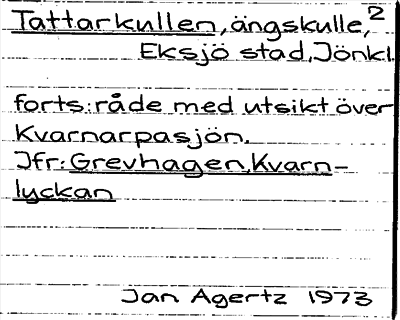 Tattarkullen, ängskulle, 2
Eksjö stad, Jönkl.
forts: råde med utsikt över
Kvarnarpasjön.
Jfr: Grevhagen, Kvarn-
lyckan
Jan Agertz 1973